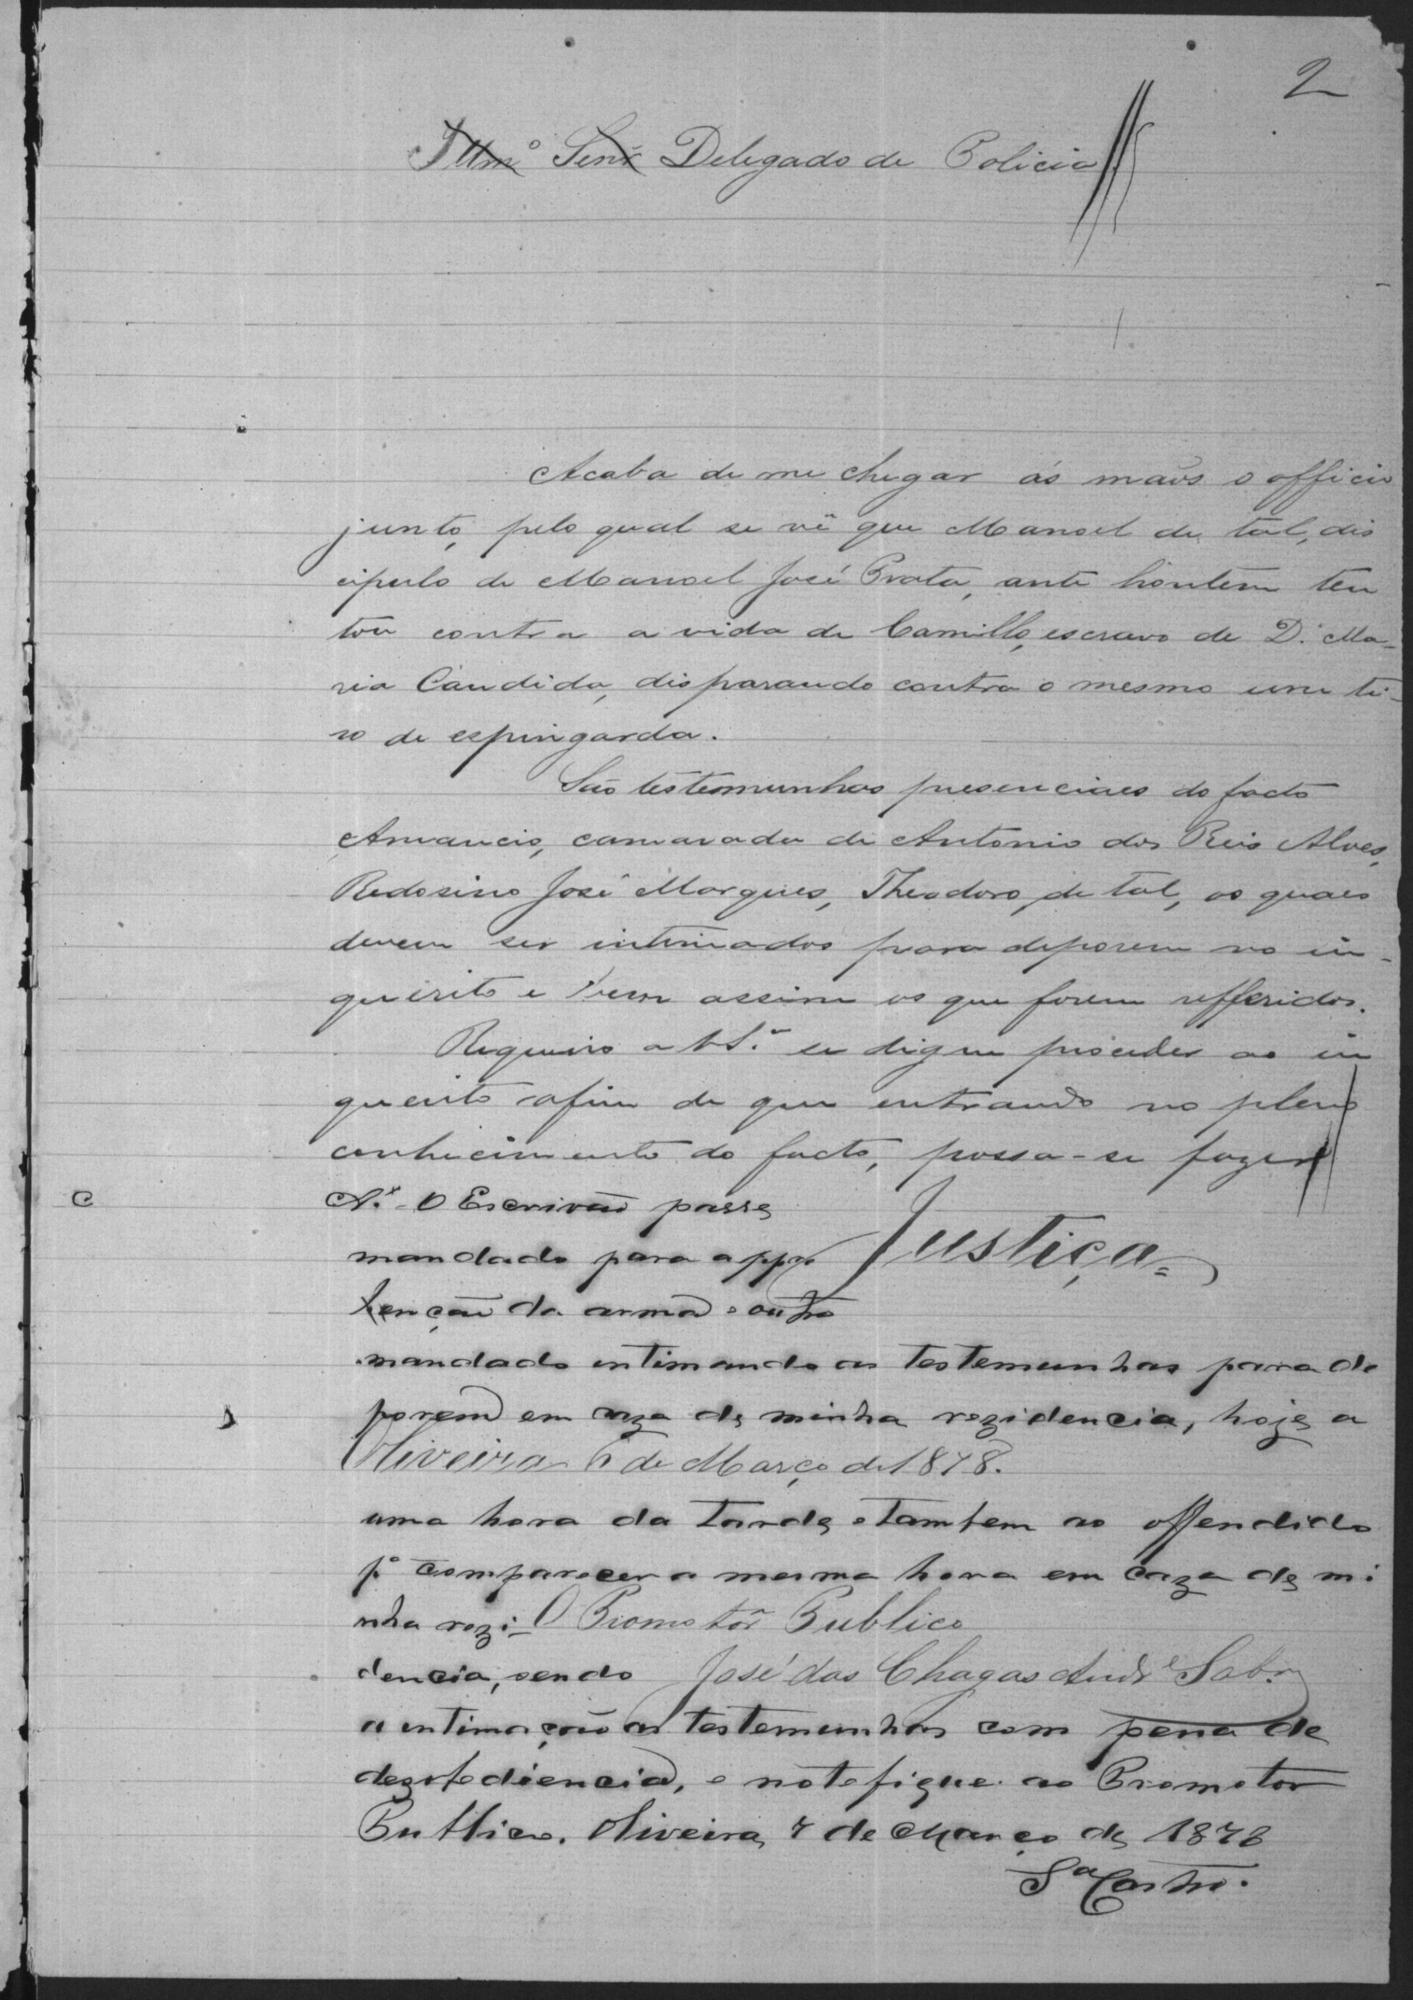 2
Illmº Senr Delegado de Policia
Acaba de me chegar ás mãos o officio
junto, pelo qual se vê que Manoel de tal, dis
cipulo de Manoel José Prata, ante hontem ten
tou contra a vida de Camillo, escravo de D. Ma-
ria Candida, disparando contra o mesmo um ti-
ro de espingarda.
São testemunhas presenciaes do facto
Amancio, camarada de Antonio dos Reis Alves,
José Marques, Theodoro de tal, os quaes
devem ser intimados para deporem no in-
querito e bem assim os que forem refferidos.
Requeiro a V.Sª se digne proceder ao in
querito afim de que entrando no pleno
conhecimento do facto, possa-se fazer
Justiça=
A. O Escrivaõ passe
mandado para appre
henção da arma e outro
mandado intimando as testemunhas para de
porem em caza de minha rezidencia, hoje a
Oliveira 6 de Março de 1878.
uma hora da tarde e tambem ao offendido
pª comparecer a mesma hora em caza de mi
nha rezi-
O Promotor Publico
dencia, sendo
José das Chagas Andrº Sobrº
a intimação as testemunhas com pena de
dezobediencia, e notefique ao Promotor
Publico. Oliveira 7 de Março de 1878
Sª Castro.